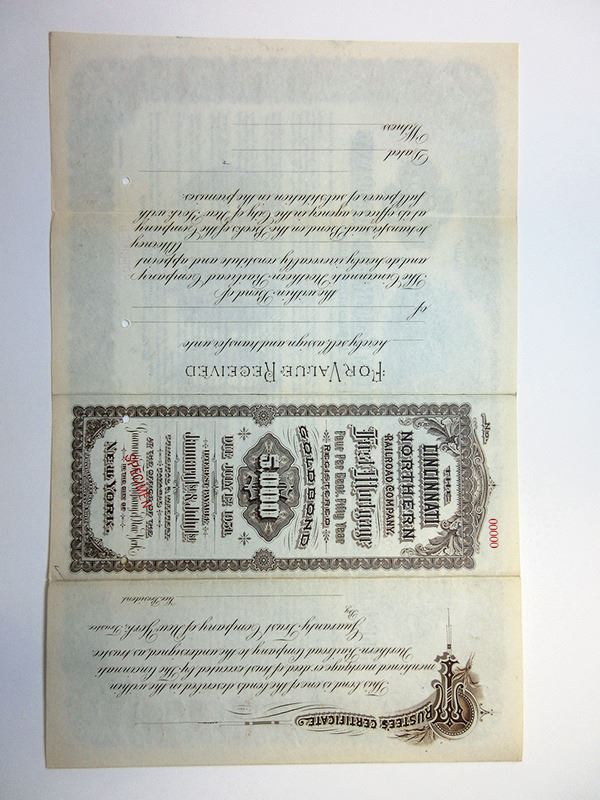 FOR VALUE RECEIVED
hereby sell, assign and transfer unto
of
the within Bond of
The Cincinnati Northern Railroad Company,
and do hereby irrevocably constitute and appoint
Attorney
to transfer said Bond on the Books of the Company
at its office or agency in the City of New York with
full power of substitution in the premises.
Dated
Witness
No.
00000
THE
CINCINNATI
NORTHERN
RAILROAD COMPANY.
First Mortgage
Four Per Cent. Fifty Year
REGISTERED
GOLD BOND
$5,000
DUE JULY 1st, 1951.
INTEREST PAYABLE
January 1st & July 1st
PRINCIPAL & INTEREST
PAYABLE
AT THE OFFICE OF THE
Guaranty Trust Company of New York,
IN THE CITY OF
NEW YORK.
SPECIMEN
TRUSTEE'S CERTIFICATE.
This bond is one of the bonds described in the within
mentioned mortgage or deed of trust executed by The Cincinnati
Northern Railroad Company to the undersigned as trustee.
Guaranty Trust Company of New York, Trustee
By
Vice President